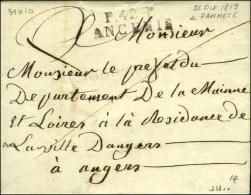 33x10
P.42.P.
ANCENIS
21 Dec 1819
Monsieur
Monsieur le prefet du
Departement De la Mainne
et Loires à la Residance de
La ville Dangers
à angers